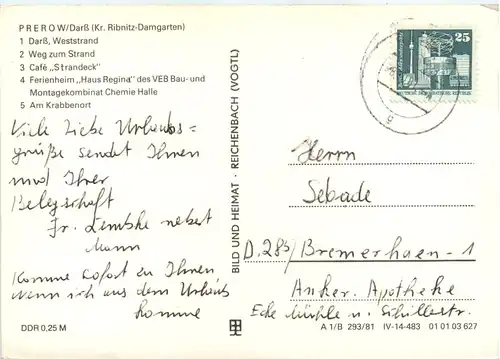 PREROW/Darß (Kr. Ribnitz-Damgarten)
1 Darß, Weststrand
2 Weg zum Strand
3 Café „Strandeck"
4 Ferienheim „Haus Regina" des VEB Bau- und
Montagekombinat Chemie Halle
5 Am Krabbenort
Viele Liebe Urlaubs-
grüße sendet Ihnen
und Ihrer
Belegschaft
Fr. Lembke nebst
Mann
Komme sofort zu Ihnen
wenn ich aus dem Urlaub
komme
DDR 0,25 M
BILD UND HEIMAT · REICHENBACH (VOGTL)
25
Herrn
Sebade
D. 285/Bremerhaen-1
Anker. Apotheke
Ecke Mühle u. Schillerstr.
A 1/B 293/81 IV-14-483 01 01 03 627